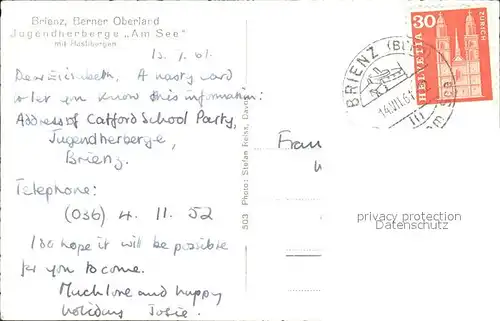 Brienz, Berner Oberland
Jugendherberge „Am See"
mit Haslibergen
13.7.61.
Dear Elizabeth, A hasty card
to let you know this information:
Address of Catford School Party,
Jugendherberge,
Brienz.
Telephone:
(036) 4. 11. 52
I do hope it will be possible
for you to come.
Much love and happy
holidays Josie.
503 Photo: Stefan Reiss, Davos
Frau
30
HELVETIA
ZÜRICH
BRIENZ (BE)
14.VII.61
am See
privacy protection
Datenschutz